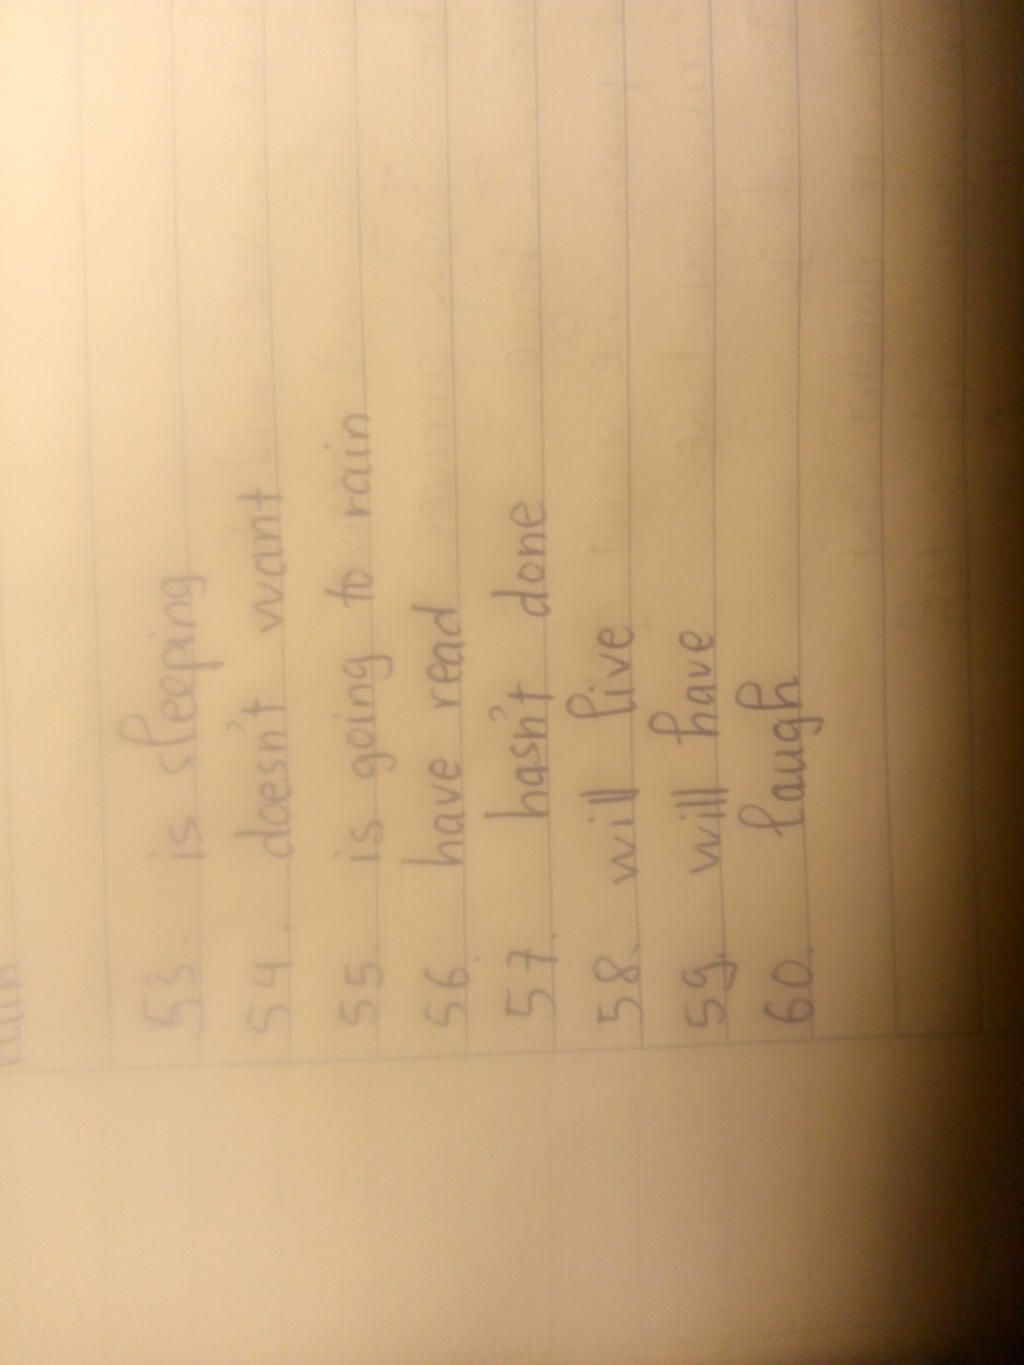 53. is sleeping
54. doesn't want
55. is going to rain
56. have read
57. hasn't done
58. will live
59. will have
60. laugh